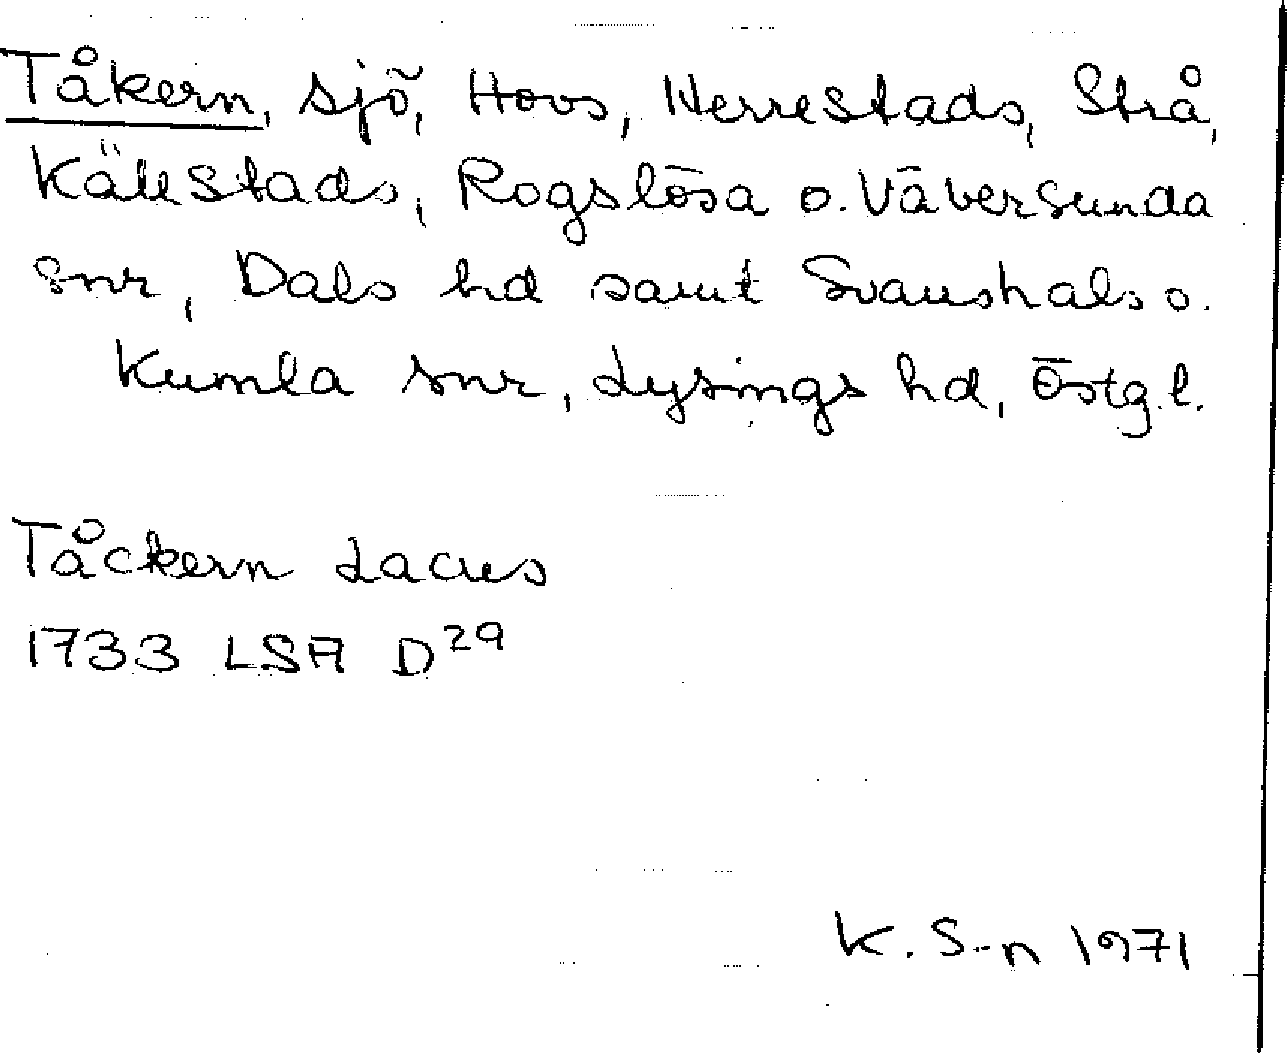 Tåkern, sjö, Hovs, Herrestads, Strå,
Källstads, Rogslösa o. Väversunda
snr, Dals hd samt Svanshals o.
Kumla snr, Lysings hd, Östg.l.
Tåckern Lacus
1733 LSA D²⁹
K. S-n 1971